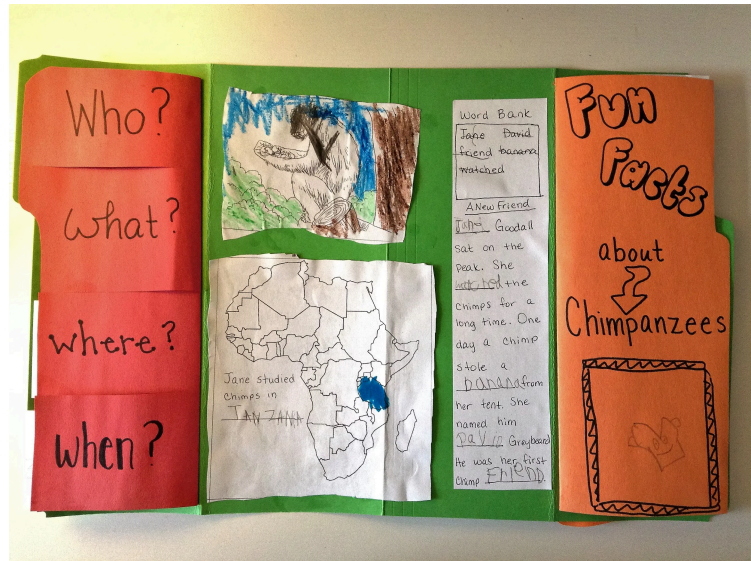 Who?
What?
where?
when?
Jane studied
chimps in
TANZANA
Word Bank
Jane David
friend banana
watched
A New Friend
Jane Goodall
sat on the
peak. She
watched the
chimps for a
long time. One
day a chimp
stole a
banana from
her tent. She
named him
David Greybeard
He was her first
chimp FriEND.
Fun
Facts
about
Chimpanzees